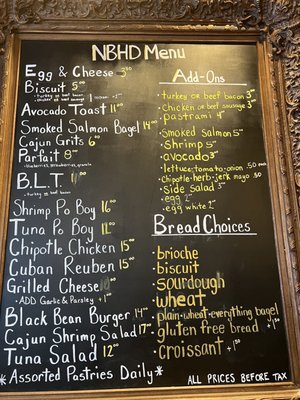 NBHD Menu
Egg & Cheese 3.50
Biscuit 5.00
- turkey or beef bacon
- chicken or beef sausage
Avocado Toast 11.00
Smoked Salmon Bagel 14.00
Cajun Grits 6.00
Parfait 8.00
B.L.T. 11.00
- Turkey or Beef Bacon
Shrimp Po Boy 16
Tuna Po Boy 11.00
Chipotle Chicken 15
Cuban Reuben 15
Grilled Cheese 10
- ADD Garlic & Parsley +1
Black Bean Burger 14
Cajun Shrimp Salad 17
Tuna Salad 12.00
*Assorted Pastries Daily*
Add-Ons
• turkey or beef bacon 3
• Chicken or beef sausage 3
• Pastrami 4
• Smoked salmon 5
• Shrimp 5
• avocado 3
• lettuce·tomato·onion .50
• chipotle·herb·jerk mayo .50
• Side salad 3
• egg 2
• egg white 2
Bread Choices
• brioche
• biscuit
• sourdough
• wheat
• plain·wheat·everything bagel
• gluten free bread +1.50
• croissant +1.50
ALL PRICES BEFORE TAX